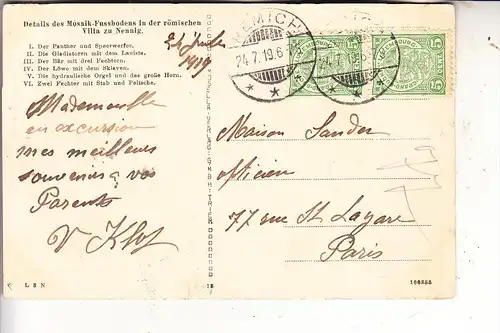 Details des Mosaik-Fussbodens in der römischen
Villa zu Nennig.
I. Der Panther und Speerwerfer.
II. Die Gladiatoren mit dem Lanista.
III. Der Bär mit drei Fechtern.
IV. Der Löwe mit dem Sklaven.
V. Die hydraulische Orgel und das große Horn.
VI. Zwei Fechter mit Stab und Peitsche.
1919
Mademoiselle
en excursion
mes meilleurs
souvenirs a vos
Parents
REMICH
24.7.19.6
24.7.19.6
5
5
Maison Sander
77 rue St Lazare
Paris
L 8 N
18